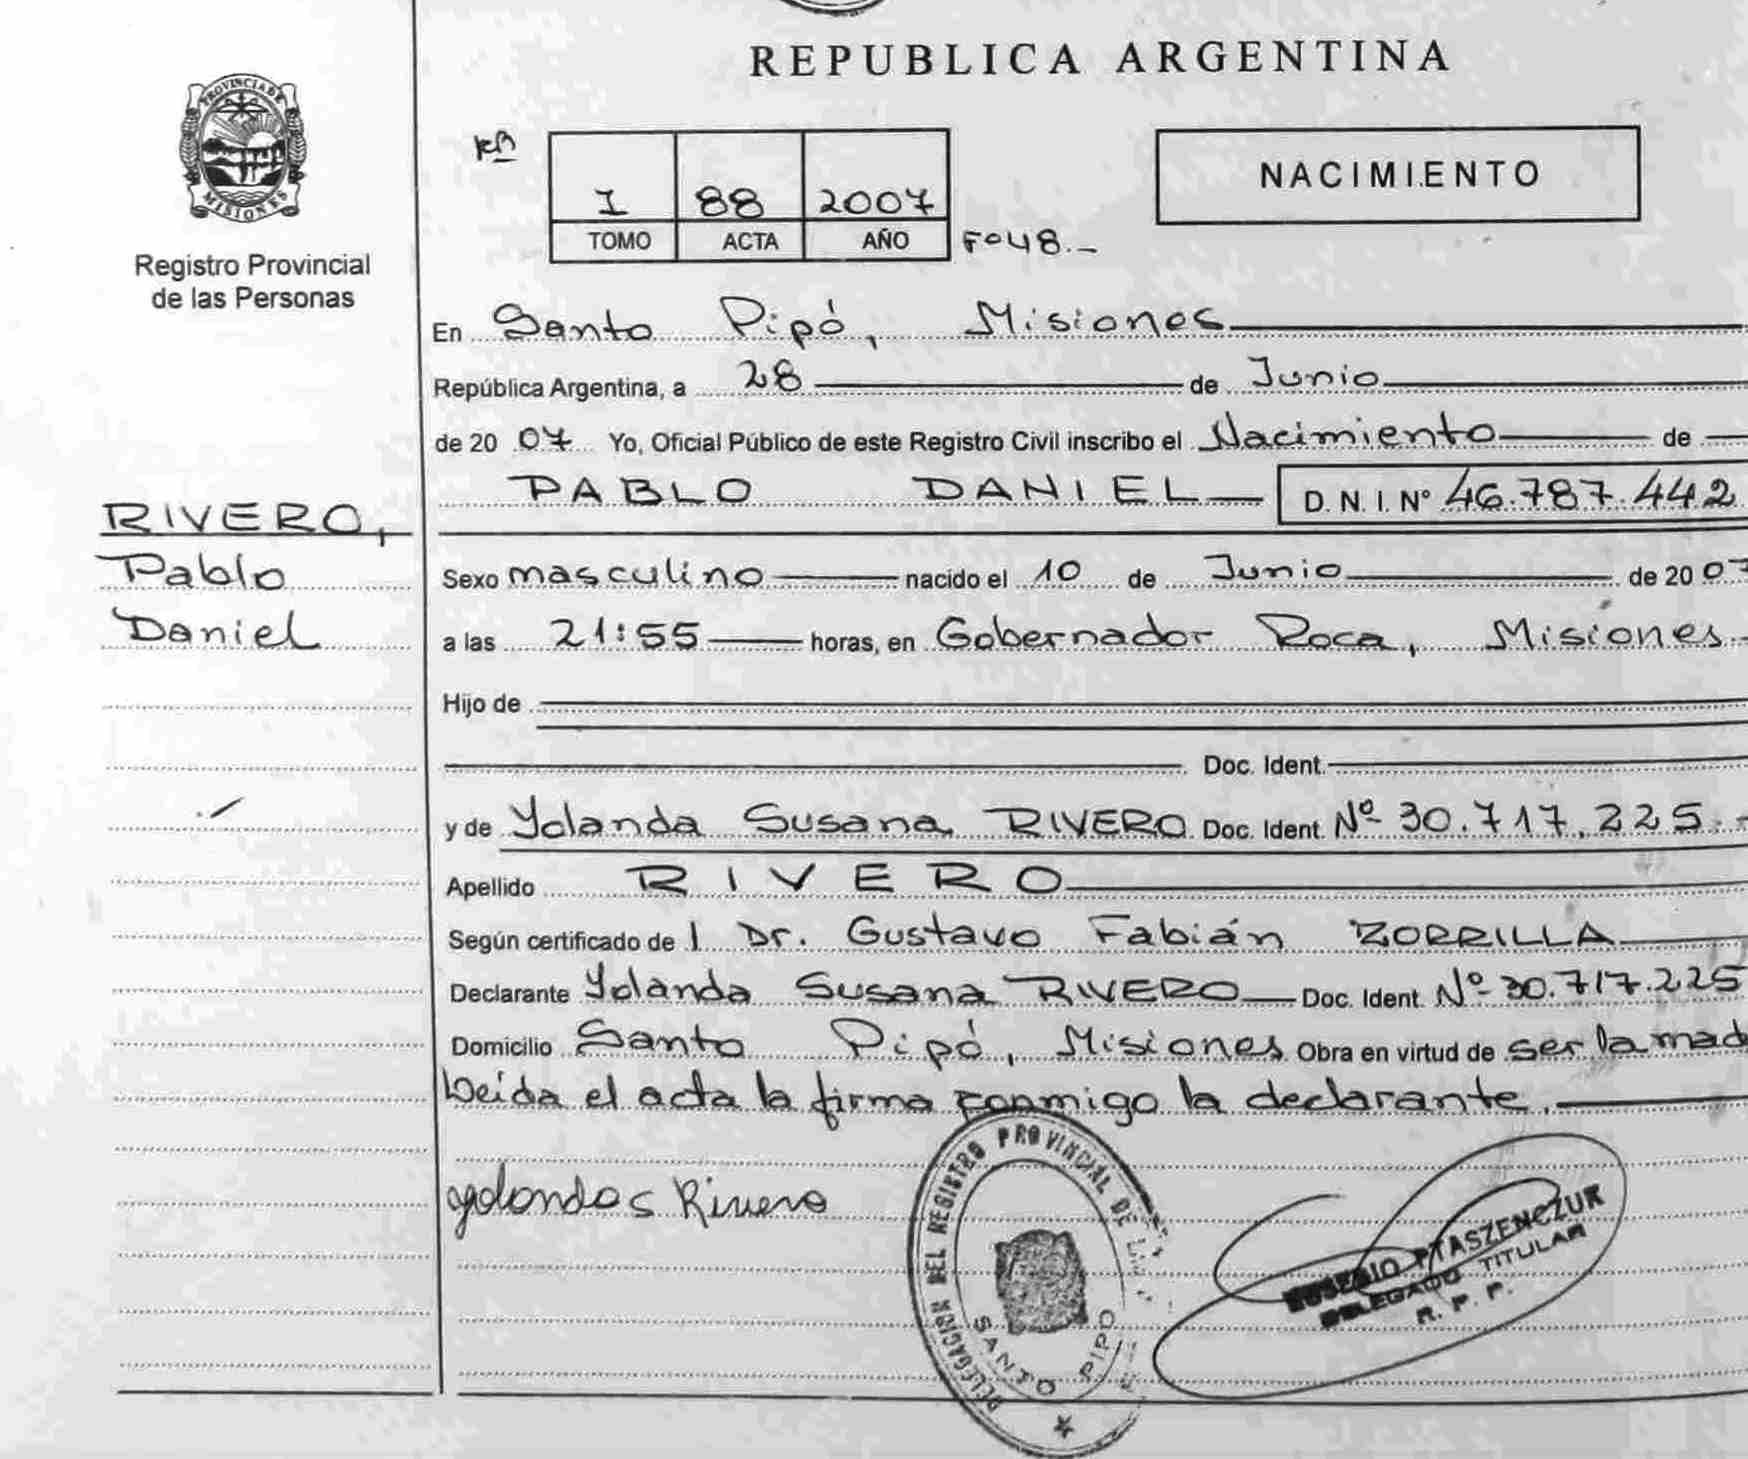 REPUBLICA ARGENTINA
PROVINCIA DE MISIONES
Registro Provincial
de las Personas
I 88 2007
TOMO ACTA AÑO Fº 48.-
NACIMIENTO
En Santo Pipó, Misiones
República Argentina, a 28 de Junio
de 20 07 Yo, Oficial Público de este Registro Civil inscribo el Nacimiento de
PABLO DANIEL D. N. I. Nº 46.787.442
RIVERO,
Pablo
Daniel
Sexo masculino nacido el 10 de Junio de 20 07
a las 21:55 horas, en Gobernador Roca, Misiones
Hijo de
Doc. Ident.
y de Yolanda Susana RIVERO Doc. Ident. Nº 30.717.225.-
Apellido RIVERO
Según certificado de l Dr. Gustavo Fabián ZORRILLA
Declarante Yolanda Susana RIVERO Doc. Ident. Nº 30.717.225
Domicilio Santo Pipó, Misiones Obra en virtud de ser la mad
Leída el acta la firma conmigo la declarante.
yolondas Rivero
DELEGACION DEL REGISTRO PROVINCIAL DE
SANTO PIPO
EUSEBIO PTASZENCZUR
DELEGADO TITULAR
R. P. P.